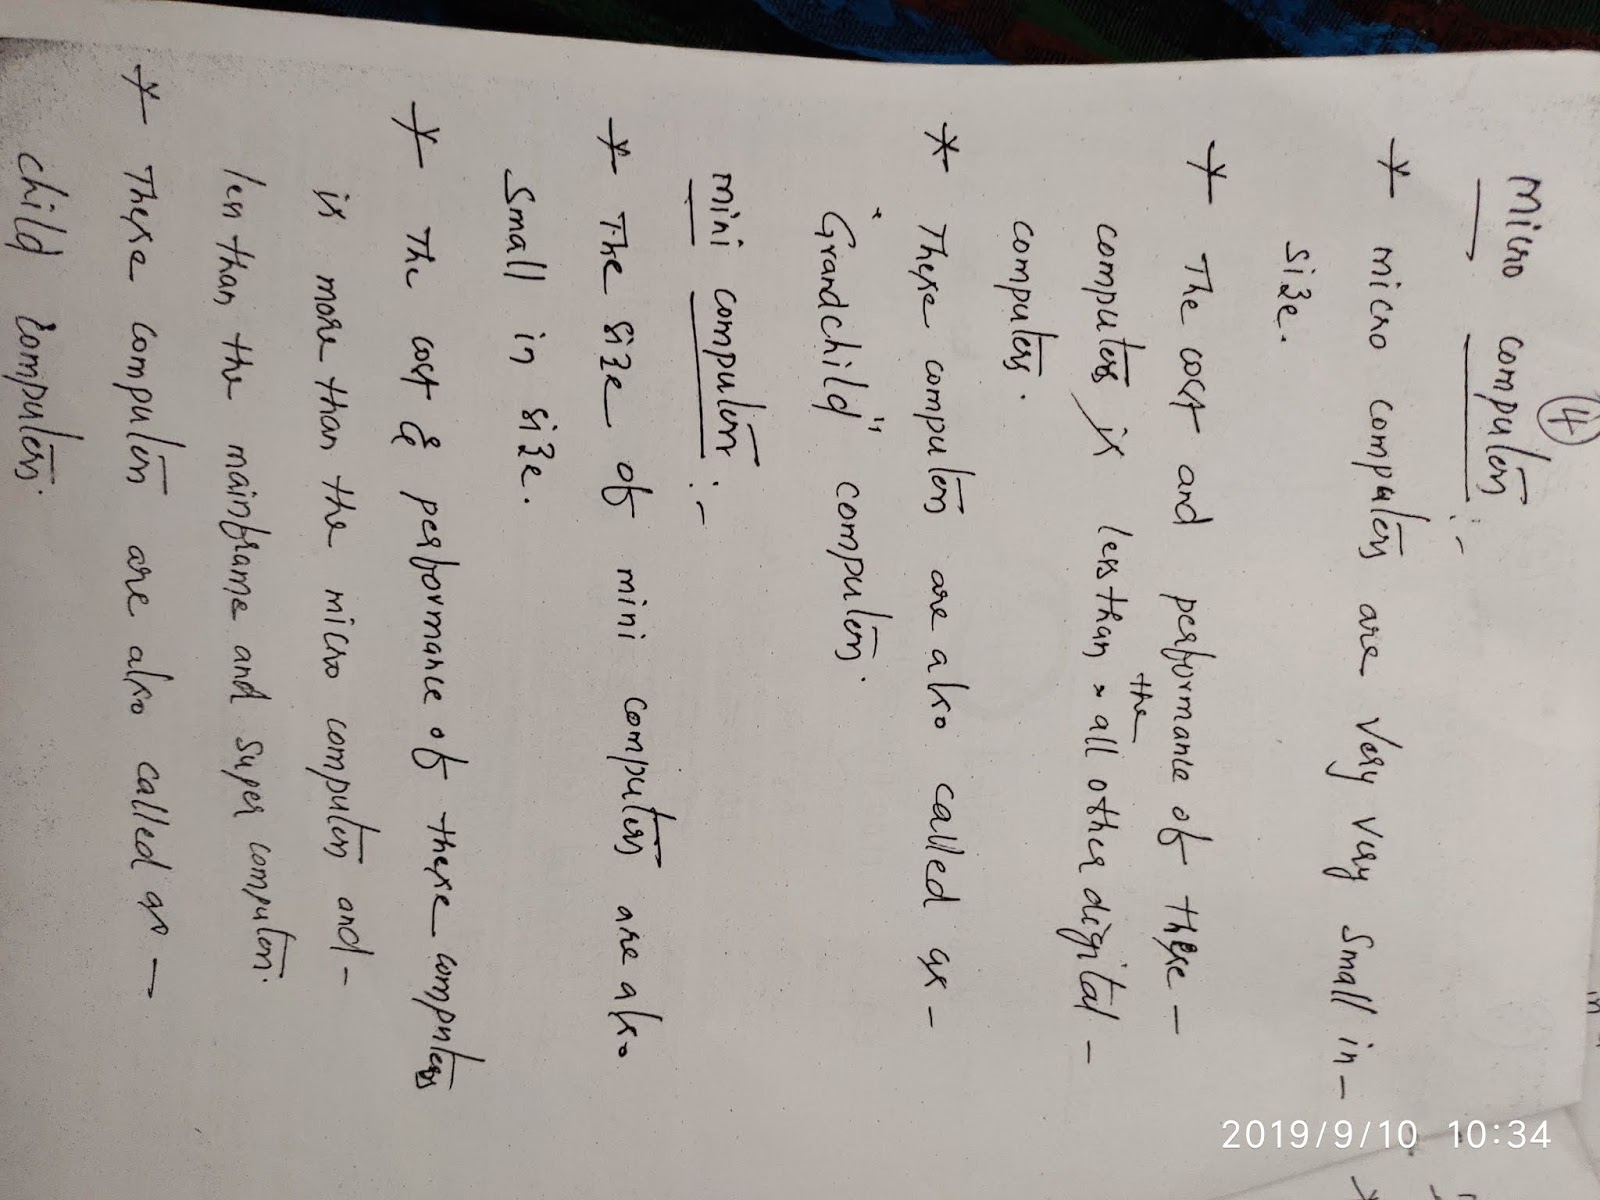 4
Micro computers :-
* micro computers are very very small in-
size.
* The cost and performance of these -
the
computers is less than all other digital -
computers.
* These computers are also called as -
"Grandchild" computers.
mini computers :-
* The size of mini computers are also
small in size.
* The cost & performance of these computers
is more than the micro computers and -
less than the mainframe and super computers.
* These computers are also called as -
child computers.
2019/9/10 10:34